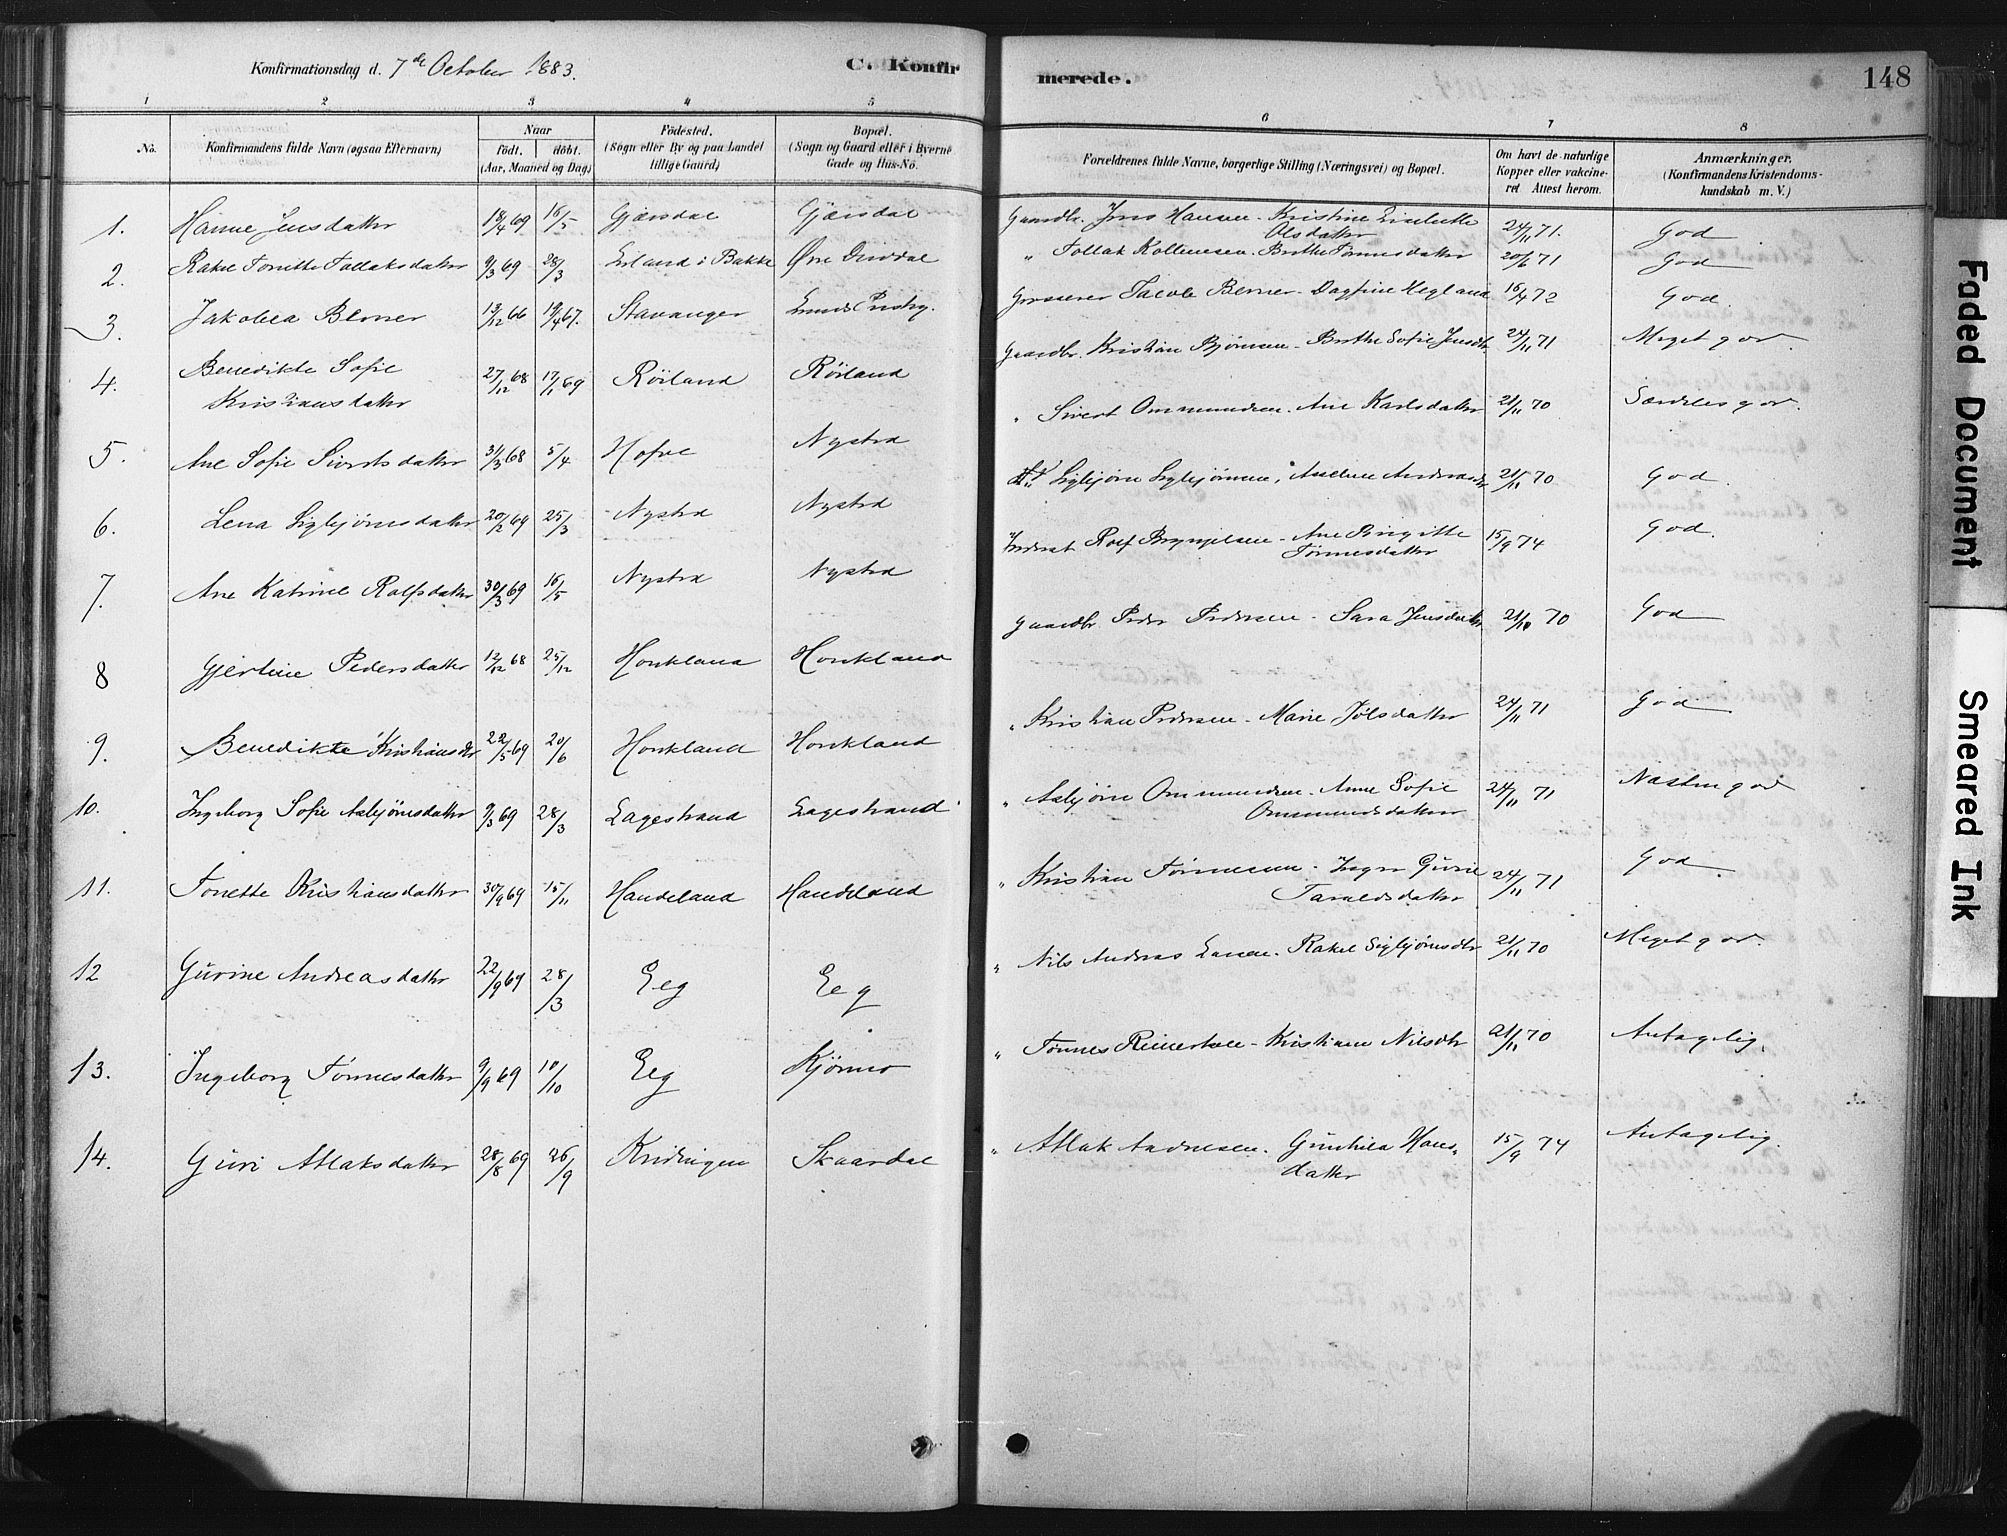 Konfirmationsdag d. 7de October 1883.
C. Konfirmerede.
148
1 2 3 4 5 6 7 8
No.
Konfirmandens fulde Navn (ogsaa Efternavn)
Naar
födt. döbt.
(Aar, Maaned og Dag)
Födested.
(Sogn eller By og paa Landet
tillige Gaard)
Bopæl.
(Sogn og Gaard eller i Byerne
Gade og Hus-No.
Forældrenes fulde Navne, borgerlige Stilling (Næringsvei) og Bopæl.
Om havt de naturlige
Kopper eller vakcine-
ret Attest herom.
Anmærkninger.
(Konfirmandens Kristendoms-
kundskab m. V.)
1. Hanne Jensdatter 18/4 69 16/5 Gjersdal Gjersdal Gaardbr. Jens Hansen - Kristine Liselutte Olsdatter 24/11 71. God
2. Rakel Tonette Tollaksdatter 9/3 69 28/3 Erland i Bakke Øvre Dirdal " Tollak Kolbensen - Berthe Tønnesdatter 20/6 71 God
3. Jakobea Berner 13/12 66 19/4 67. Stavanger Lunds Prstg. Grosserer Jacob Berner - Dagfine Hegland 16/4 72 God.
4. Benedikte Sofie Kristiansdatter 27/12 68 17/1 69 Röiland Röiland Gaardbr. Kristian Bjørnsen - Berthe Sofie Jensdtr 24/11 71 Meget god.
5. Ane Sofie Sivertsdatter 31/3 68 5/4 Hofve Nystrd " Sivert Ommundsen - Ane Karlsdatter 21/11 70 Særdeles god.
6. Lena Sigbjørnsdatter 20/2 69 25/3 Nystrd Nystrd Sigbjørn Sigbjørnsen, 21/11 70 God.
7. Ane Katrine Rolfsdatter 30/3 69 16/5 Nystrd Nystrd Inderst Rolf Bryngelsen - Ane Birgitte Tønnesdatter 15/9 74 God.
8 Gjertine Pedersdatter 12/12 68 25/12 Houkland Houkland Gaardbr. Peder Pedersen - Sara Jensdatter 21/11 70 God
9. Benedikte Kristiansdtr 22/5 69 20/6 Houkland Houkland " Kristian Pedersen - Marie Jølsdatter 24/11 71 God
10. Ingeborg Sofie Asbjørnsdatter 9/3 69 28/3 Lagestrand Lagestrand " Asbjørn Ommundsen - Anne Sofie Ommundsdatter 24/11 71 Næsten god
11. Tonette Kristiansdatter 30/9 69 15/11 Handeland Handeland " Kristian Tønnesen - Inger Gurie Taraldsdatter 24/11 71 God.
12 Gurine Andreasdatter 22/9 69 28/3 Eeg Eeg " Nils Andreas Larsen - Rakel Sigbjørnsdtr 21/11 70 Meget god.
13. Ingeborg Tønnesdatter 9/9 69 10/10 Eeg Kjørmo " Tønnes Reinertsen - Kristiane Nilsdtr 21/11 70 Antagelig.
14. Guri Atlaksdatter 28/8 69 26/9 Kvidingen Skaardal " Atlak Andresen - Gunhild Hans- datter 15/9 74 Antagelig.
Faded Document
Smeared Ink